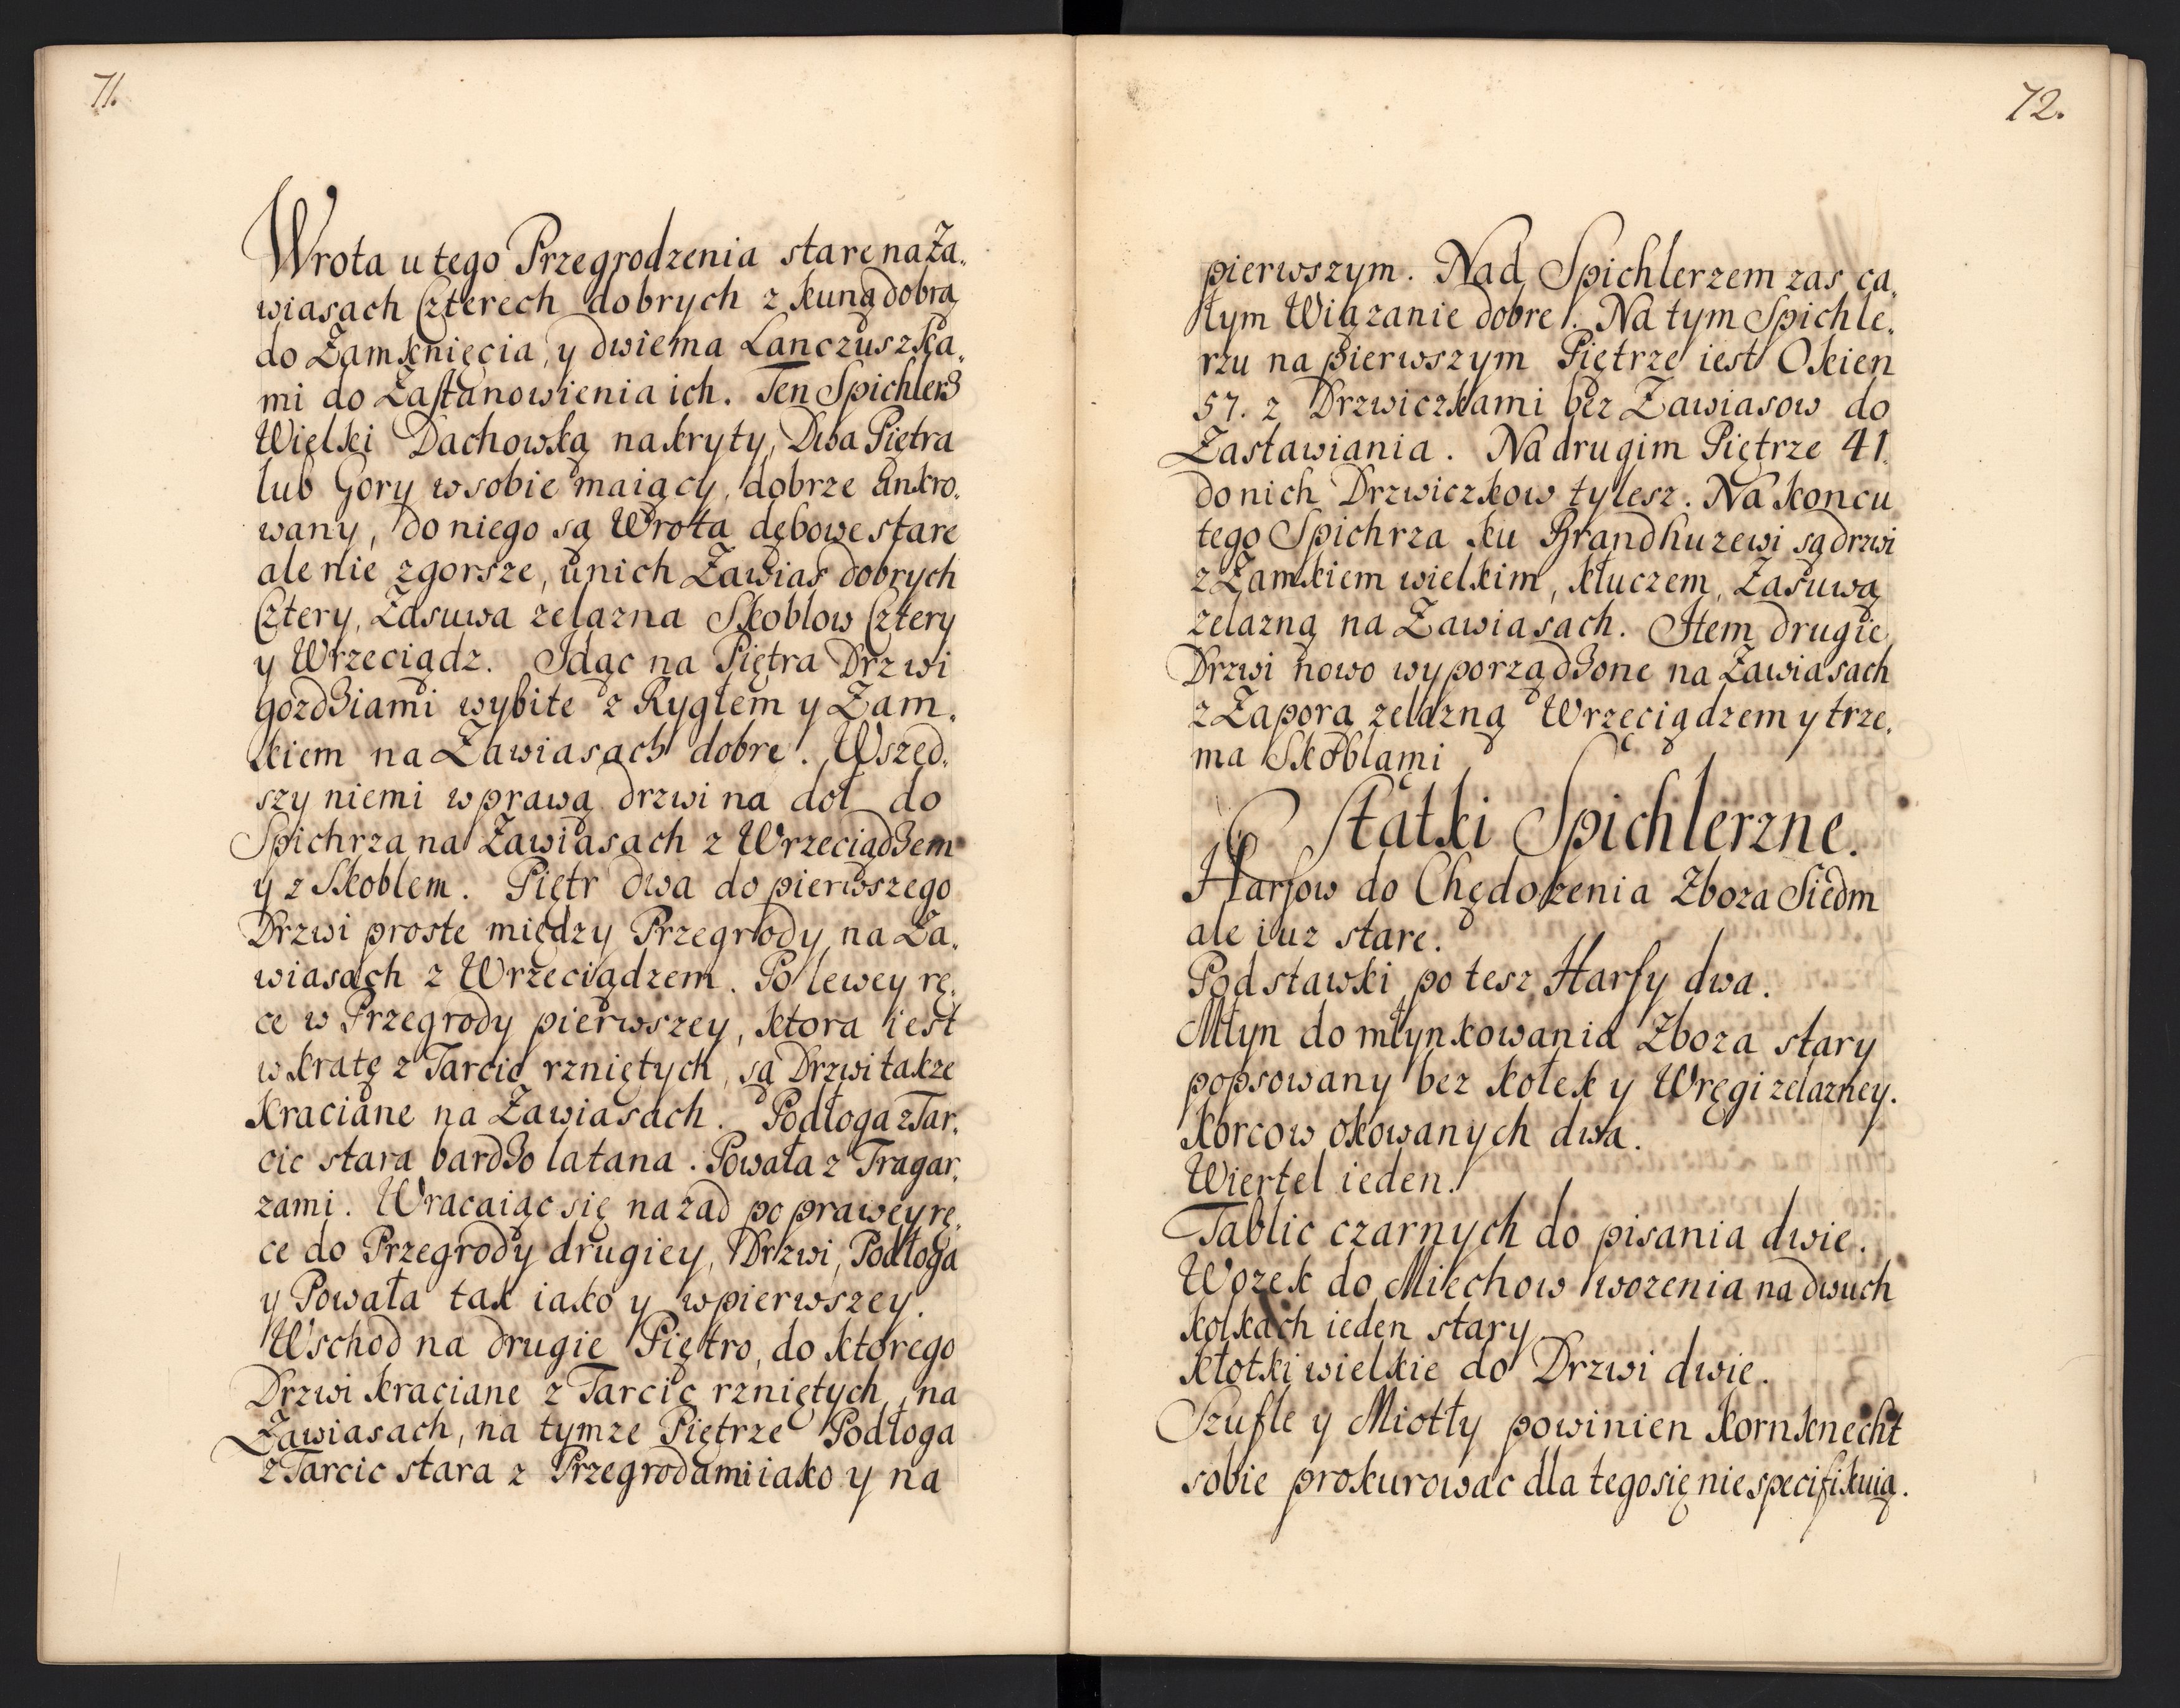 71.
Wrota u tego Przegrodzenia stare na Za„
wiasach Czterech dobrych z kuną dobrą
do Zamknięcia, y dwiema Lanczuszka„
mi do Zastanowienia ich. Ten Spichlerz
Wielki Dachowką nakryty, Dwa Piętra
lub Gory w sobie maiący, dobrze ankro„
wany, do niego są Wrota dębowe stare
ale nie zgorsze, u nich Zawias dobrych
Cztery, Zasuwa zelazna Skoblow Cztery
y Wrzeciądz. Idąc na Piętra Drzwi
gozdziami wybite z Ryglem y Zam„
kiem na Zawiasach dobre. Wszed„
szy niemi w prawą drzwi na doł do
Spichrza na Zawiasach z Wrzeciądzem
y z Skoblem. Piętr dwa do pierwszego
Drzwi proste między Przegrody na Za„
wiasach z Wrzeciądzem. Po lewey rę„
ce w Przegrody pierwszey, ktora iest
w kratę z Tarcic rzniętych, są Drzwi takze
Kraciane na Zawiasach. Podłoga z Tar„
cic stara bardzo latana. Powała z Tragar„
zami. Wracaiąc się nazad po prawey rę„
ce do Przegrody drugiey, Drzwi, Podłoga
y Powała tak iako y w pierwszey.
Wschod na drugie Piętro, do ktorego
Drzwi kraciane z Tarcic rzniętych, na
Zawiasach, na tymze Piętrze Podłoga
z Tarcic stara z Przegrodami iako y na
72.
pierwszym. Nad Spichlerzem zas ca„
łym Wiązanie dobre. Na tym Spichle„
rzu na pierwszym Piętrze iest Okien
57. z Drzwiczkami bez Zawiasow do
Zastawiania. Na drugim Piętrze 41.
do nich Drzwiczkow tylesz. Na koncu
tego Spichrza ku Brandhuzewi są drzwi
z Zamkiem wielkim, kluczem, Zasuwą
zelazną na Zawiasach. Item drugie
Drzwi nowo wyporządzone na Zawiasach
z Zaporą zelazną Wrzeciądzem y trze„
ma Skoblami
Statki Spichlerzne.
Harfow do Chędozenia Zboza Siedm
ale iuz stare.
Podstawki po tesz Harfy dwa.
Młyn do młynkowania Zboza stary
popsowany bez kołek y Wręgi zelazney.
Korcow okowanych dwa.
Wiertel ieden.
Tablic czarnych do pisania dwie.
Wozek do Miechow wozenia na dwuch
kolkach ieden stary
Kłotki wielkie do Drzwi dwie.
Szufle y Miotły powinien Kornknecht
sobie prokurowac dla tego się nie specifikuią.